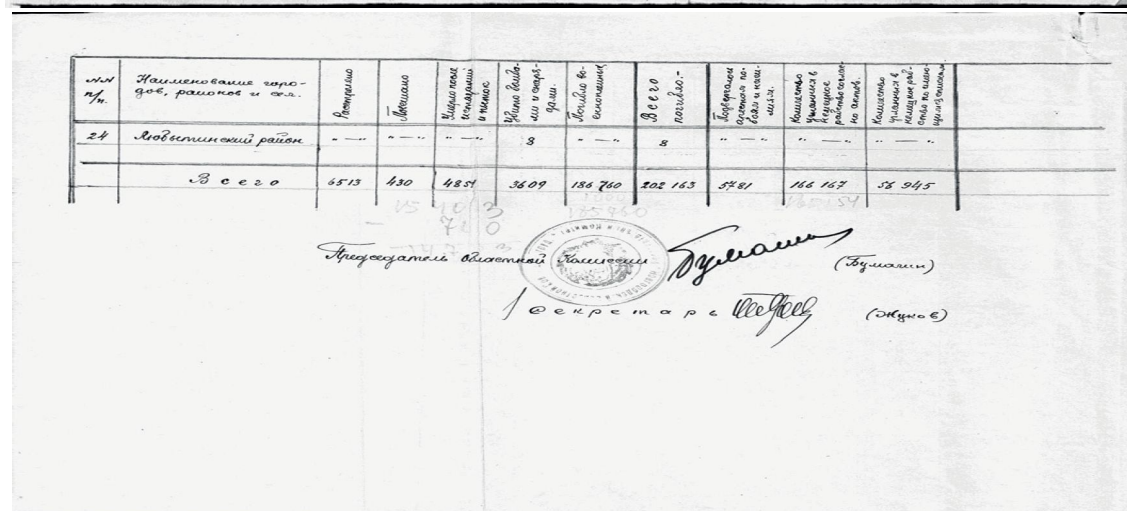 NN п/п.
Наименование горо-
дов, районов и сел.
Расстреляно
Повешано
Умерло после
истязаний
и пыток
Убито бомба-
ми и снаря-
дами.
Погибло во-
еннопленных
Всего
погибло:-
Подвергались
арестам по-
боям и наси-
лиям.
Количество
угнанных в
немецкое
рабство согласно
актов.
Количество
угнанных в
немецкое раб-
ство по
24 Любытинский район " — " " — " " — " 8 " — " 8 " — " " — " " — "
Всего 6513 430 4851 3609 186 760 202 163 5781 166 167 56 945
Председатель Областной Комиссии (Бумагин)
Секретарь (Жуков)